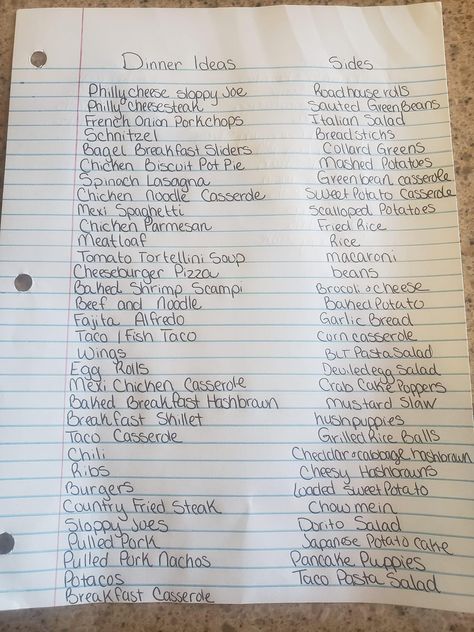 Dinner Ideas Sides
Philly cheese sloppy Joe Roadhouse rolls
Philly cheesesteak Sauted Green Beans
French Onion Porkchops Italian Salad
Schnitzel Breadsticks
Bagel Breakfast Sliders Collard Greens
Chicken Biscuit Pot Pie Mashed Potatoes
Spinach Lasagna Greenbean casserole
Chicken Noodle Casserole Sweet Potato Casserole
Mexi Spaghetti Scalloped Potatoes
Chicken Parmesan Fried Rice
Meatloaf Rice
Tomato Tortellini Soup macaroni
Cheeseburger Pizza beans
Baked Shrimp Scampi Brocoli & cheese
Beef and Noodle Baked Potato
Fajita Alfredo Garlic Bread
Taco / Fish Taco Corn casserole
Wings BLT Pasta Salad
Egg Rolls Deviled egg Salad
Mexi Chicken Casserole Crab Cake Poppers
Baked Breakfast Hashbrown Mustard Slaw
Breakfast Skillet hushpuppies
Taco Casserole Grilled Rice Balls
Chili Cheddar & cabbage hashbrown
Ribs Cheesy Hashbrowns
Burgers Loaded Sweet Potato
Country Fried Steak Chow mein
Sloppy Joes Dorito Salad
Pulled Pork Japanese Potato Cake
Pulled Pork Nachos Pancake Puppies
Potacos Taco Pasta Salad
Breakfast Casserole